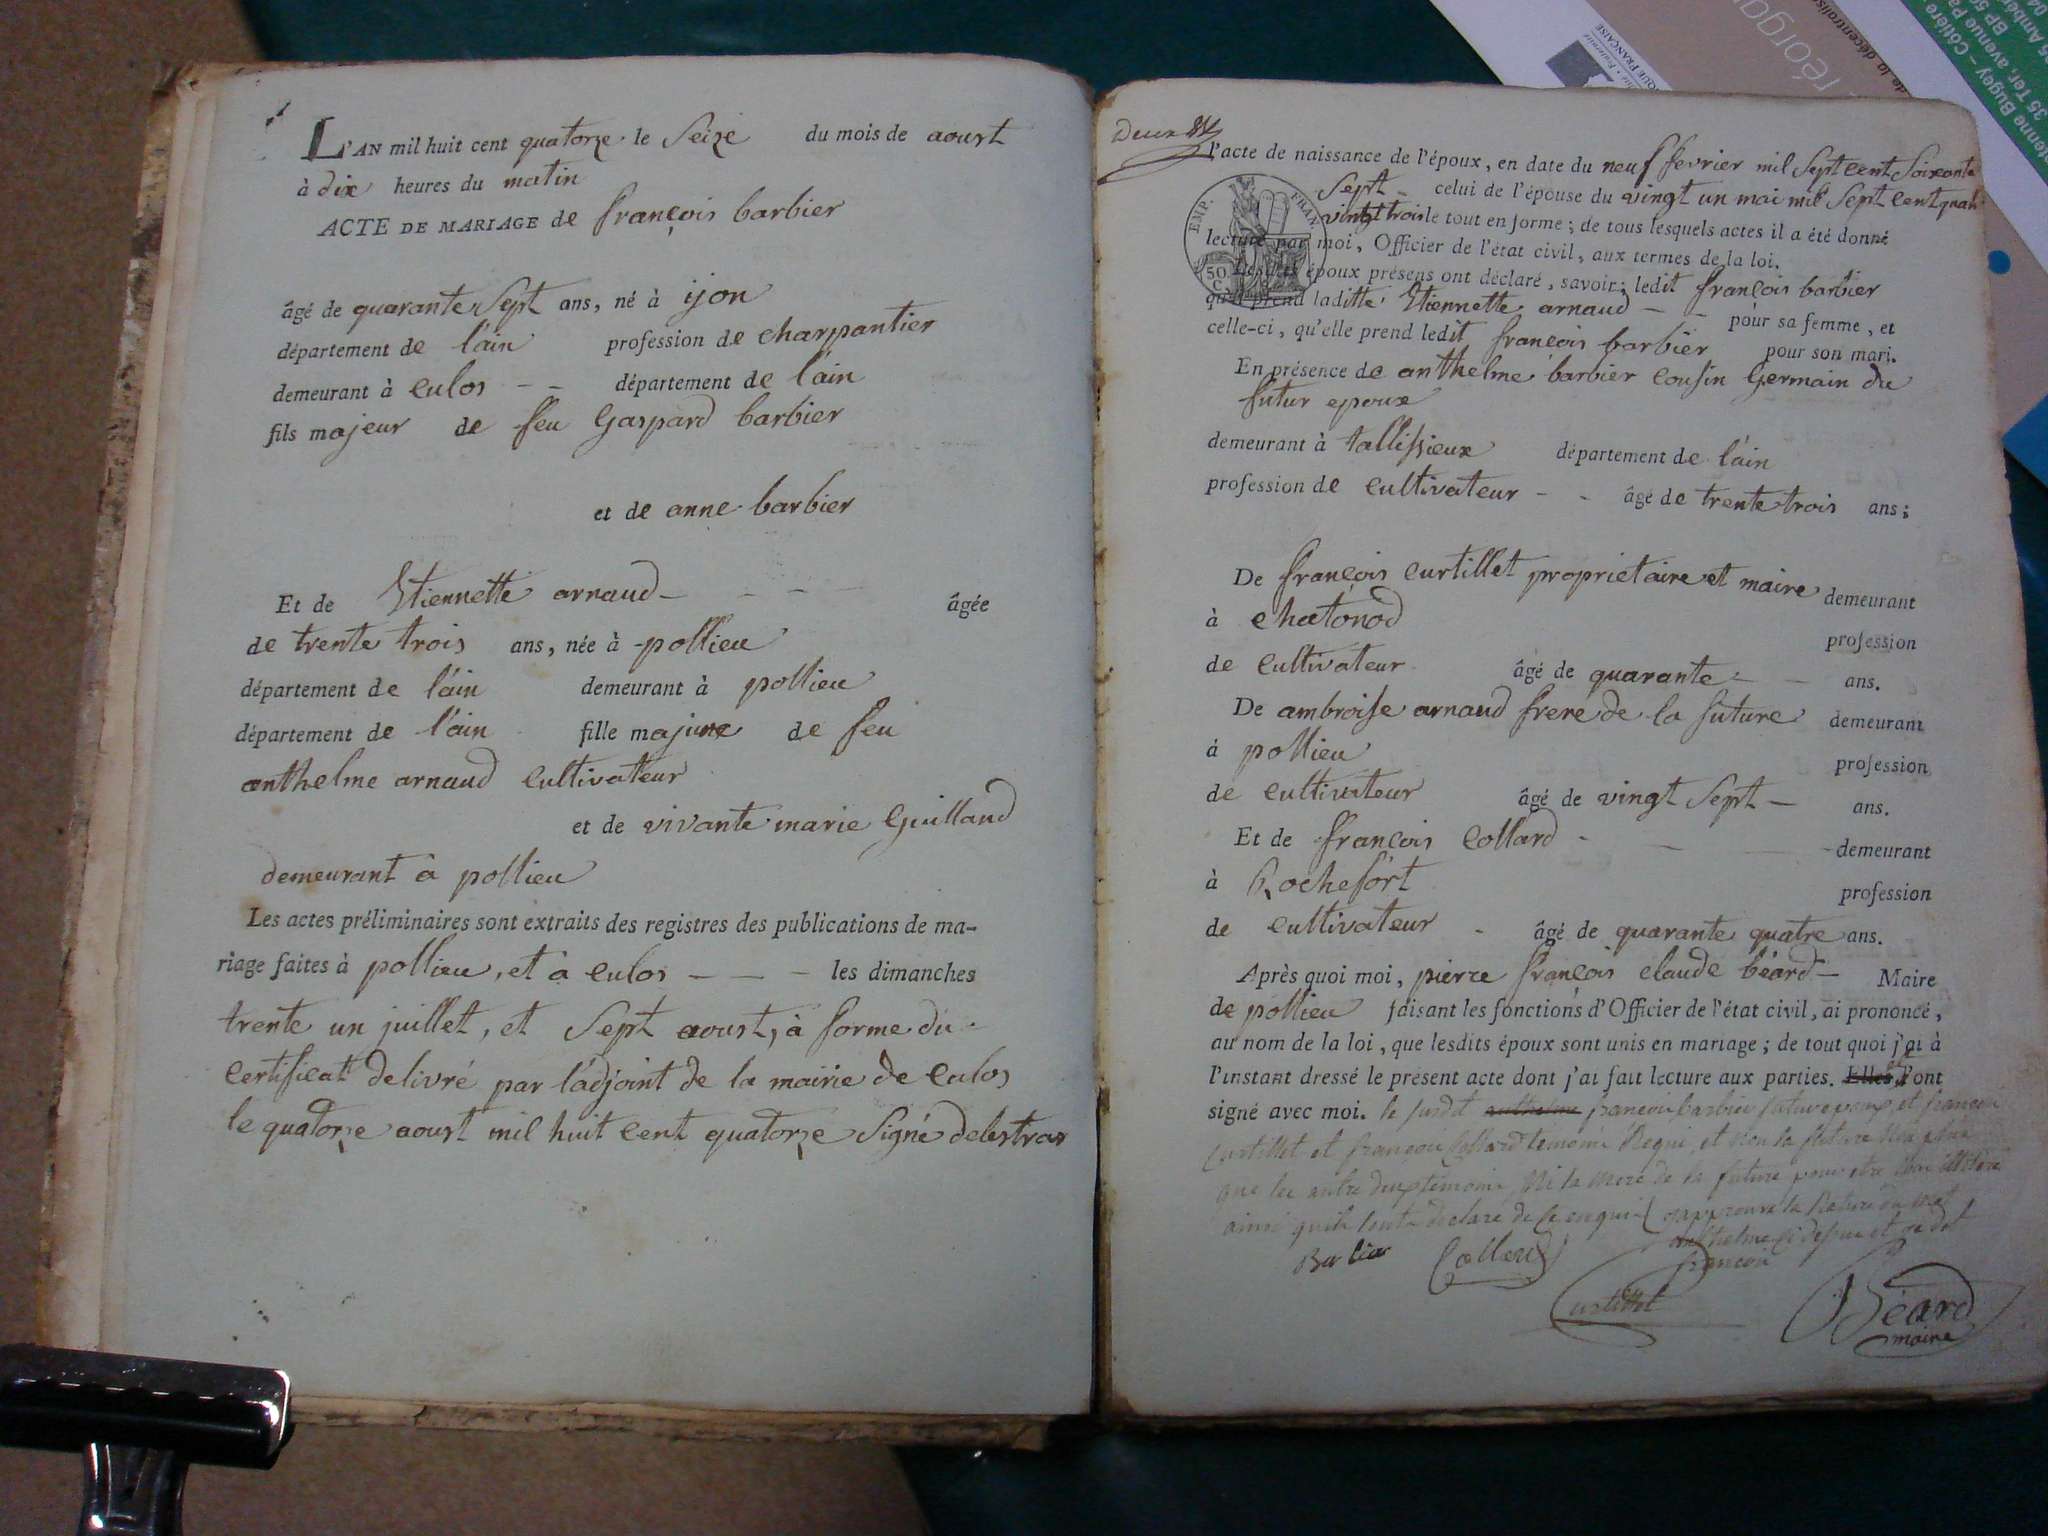 L'AN mil huit cent quatorze le Seize du mois de aoust
à dix heures du matin
ACTE DE MARIAGE de françois barbier
âgé de quarante Sept ans, né à ijon
département de l'ain profession de charpantier
demeurant à culos - - département de l'ain
fils majeur de feu Gaspard barbier
et de anne barbier
Et de Etiennette arnaud - - - - âgée
de trente trois ans, née à pollieu
département de l'ain demeurant à pollieu
département de l'ain fille majure de feu
anthelme arnaud cultivateur
et de vivante marie Guilland
demeurant à pollieu
Les actes préliminaires sont extraits des registres des publications de ma-
riage faites à pollieu, et à culos - - - les dimanches
trente un juillet, et Sept aoust, à forme du
certificat delivré par l'adjoint de la mairie de culos
le quatorze aoust mil huit cent quatorze Signé delestras
Deux
l'acte de naissance de l'époux, en date du neuf fevrier mil Sept cent Soixante
Sept - celui de l'épouse du vingt un mai mil Sept cent quatre
vingt trois le tout en forme; de tous lesquels actes il a été donné
EMP. FRAN.
lecture par moi, Officier de l'état civil, aux termes de la loi.
50. C.
Lesdits époux présens ont déclaré, savoir; ledit françois barbier
qu'il prend laditte Etiennette arnaud - - pour sa femme, et
celle-ci, qu'elle prend ledit françois barbier pour son mari.
En présence de anthelme barbier cousin Germain du
futur epoux
demeurant à tallissieux département de l'ain
profession de cultivateur - - âgé de trente trois ans;
De françois curtillet proprietaire et maire demeurant
à chatonod profession
de cultivateur âgé de quarante - - ans.
De ambroise arnaud frere de la future demeurant
à pollieu profession
de cultivateur âgé de vingt Sept - ans.
Et de françois collard - - - demeurant
à Rochefort profession
de cultivateur - âgé de quarante quatre ans.
Après quoi moi, pierre françois claude béard - Maire
de pollieu faisant les fonctions d'Officier de l'état civil, ai prononcé,
au nom de la loi, que lesdits époux sont unis en mariage; de tout quoi j'ai à
l'instant dressé le présent acte dont j'ai fait lecture aux parties. Elles l'ont
signé avec moi. le susdit anthelme francois barbier futur epoux et francois
curtillet et francois Collard temoins Requis et non la future non plus
que les autre deux temoins Ni la mere de la future pour etre illitéré
ainsi quils l'ont declaré de ce enquis japprouve la Rature du mot
anthelme ci dessus et
francois
Barbier Collard
Curtillet
Béard
maire
QUE FRANÇAISE
réorga
de la décentralis
Bugey - Côtière
35 Ter, avenue
BP 50